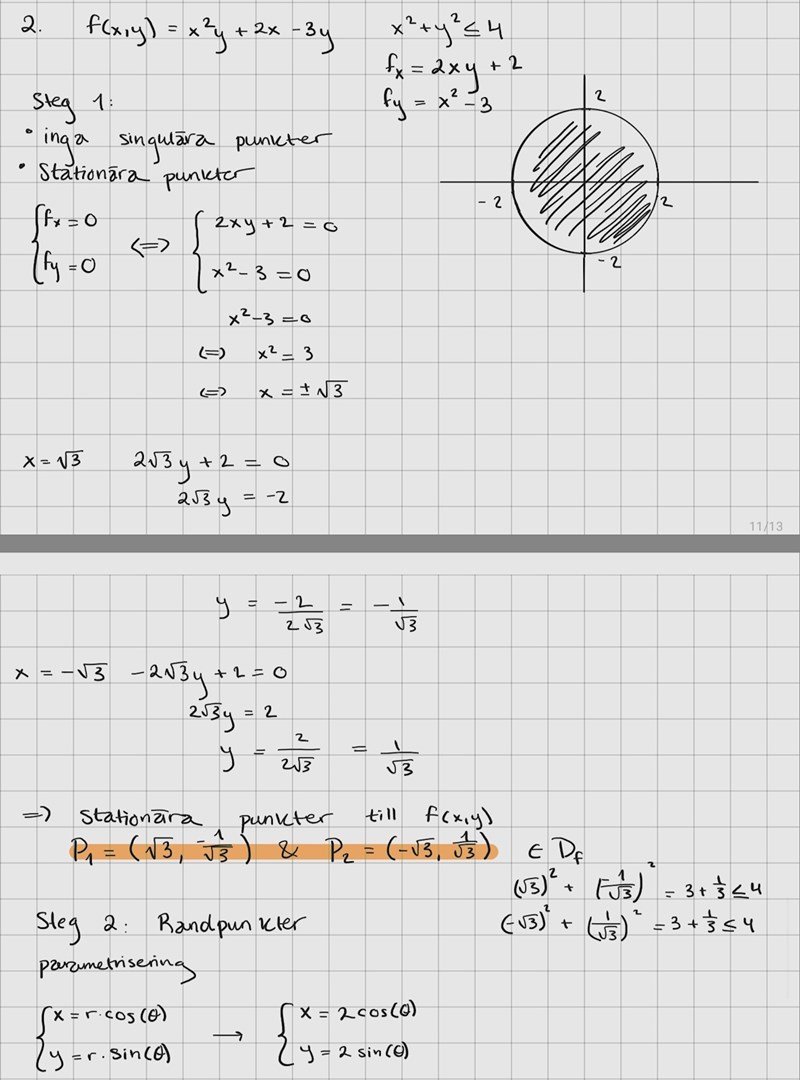 2. f(x,y) = x²y + 2x - 3y x² + y² ≤ 4
fx = 2xy + 2
fy = x² - 3
2
-2
2
-2
Steg 1:
• inga singulära punkter
• Stationära punkter
{ fx = 0 <=> { 2xy + 2 = 0
fy = 0 x² - 3 = 0
x² - 3 = 0
<=> x² = 3
<=> x = ± √3
x = √3 2√3y + 2 = 0
2√3y = -2
11/13
y = -2/2√3 = -1/√3
x = -√3 -2√3y + 2 = 0
2√3y = 2
y = 2/2√3 = 1/√3
=> Stationära punkter till f(x,y)
P₁ = (√3, -1/√3) & P₂ = (-√3, 1/√3) ∈ Df
(√3)² + (-1/√3)² = 3 + 1/3 ≤ 4
(-√3)² + (1/√3)² = 3 + 1/3 ≤ 4
Steg 2: Randpunkter
parametrisering
{ x = r·cos(θ) → { x = 2cos(θ)
y = r·sin(θ) y = 2 sin(θ)